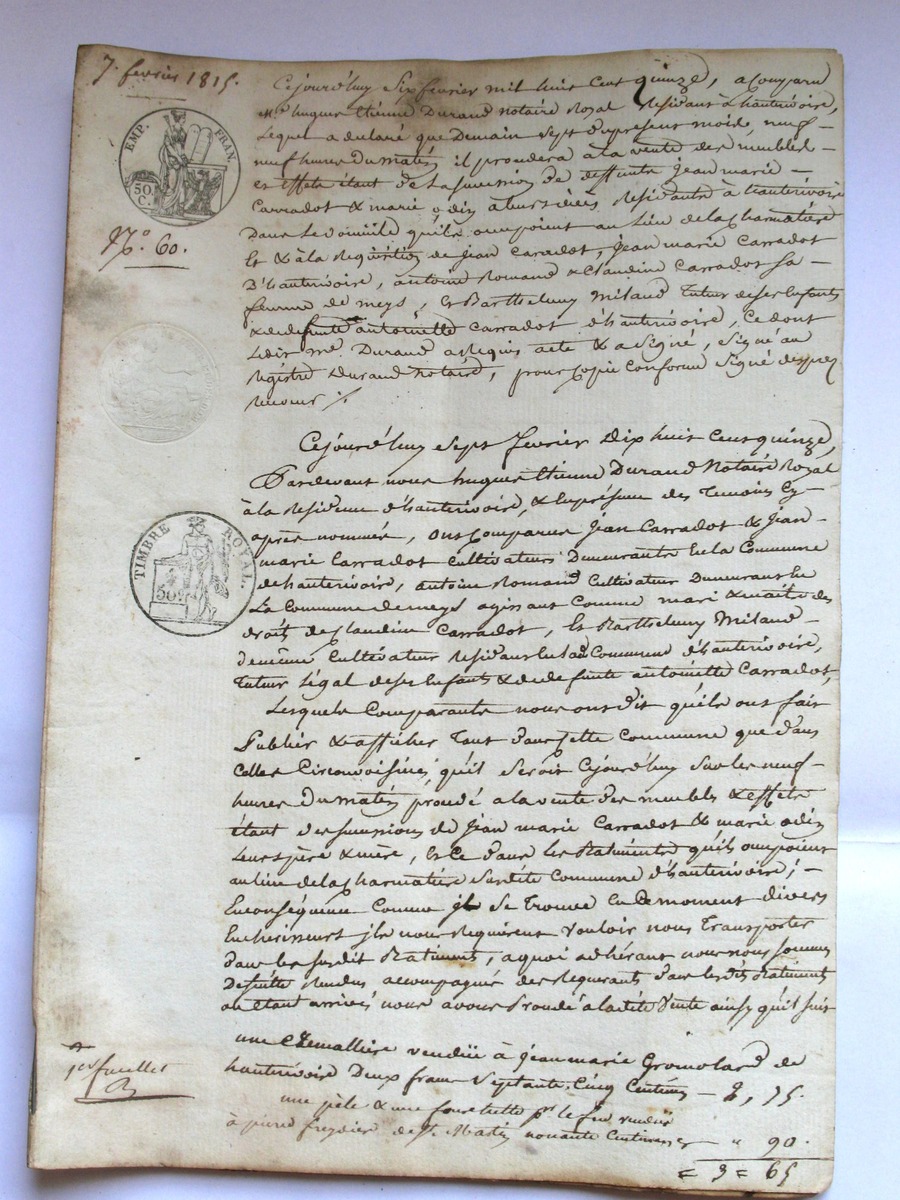 7. fevrier 1815.
EMP. FRAN.
50 C.
N.º 60.
TIMBRE ROYAL.
50
Cejourd'huy Six fevrier mil huit cent quinze, a Comparu
Me hugues Etienne Durand notaire Royal Residant à hauterivoire,
Lequel a declaré que Demain Sept du present mois, neuf
neuf heures du matin il procedera à la vente des meubles
et Effets étant de la succession de deffunts Jean marie
Carradot & marie odin Residants à hauterivoire
Dans le domicile qu'ils occupoient au Lieu de la Charmatière
Et & à la Requisition de Jean Carradot, Jean marie Carradot
D'hauterivoire, antoine Romand & Claudine Carradot sa
femme de meys, Et Barthelemy Milaud Tuteur de ses Enfants
& de defunte antoinette Carradot d'hauterivoire, Ce dont
Ledit me. Durand a Requis acte & a Signé, Signé au
Registre Durand notaire, pour Copie Conforme Signé
Receveur ./.
Cejourd'huy Sept fevrier Dix huit Cent quinze,
Pardevant nous hugues Etienne Durand Notaire Royal
à la Residence d'hauterivoire, & En presence des Temoins Cy
après nommés, ont Comparus Jean Carradot & Jean
marie Carradot Cultivateurs Demeurants En la Commune
d'hauterivoire, antoine Romand Cultivateur Demeurant En
La Commune de meys agissant Comme mari & maitre des
droits de Claudine Carradot, Et Barthelemy Milaud
de même Cultivateur Residant En lad. Commune d'hauterivoire,
Tuteur Légal de ses Enfants & de defunte antoinette Carradot,
Lesquels Comparants nous ont dit qu'ils ont fait
Publier & afficher Tant dans Cette Commune que dans
Celles Circonvoisines, qu'il Seroit Cejourd'huy Sur les neuf
heures du matin procedé a la vente des meubles & Effets
étant des successions de Jean marie Carradot & marie odin
Leurs père & mère, Et Ce dans les Batiments qu'ils occupoient
au Lieu de la Charmatière Susdite Commune d'hauterivoire;
En consequence Comme il Se Trouve En Ce moment divers
Encherisseurs ils nous Requirent Vouloir nous Transporter
dans les susdits Batiments, a quoi adhérant nous nous sommes
De suite Rendus accompagnés des Requerants dans lesdits Batiments
où étant arrivés nous avons Procedé à ladite Vente ainsy qu'il suit
une Cremallière vendüe à Jean marie Gromolard de
hauterivoire Deux francs Septante Cinq Centimes — 2, 75.
une pèle & une fourchette pr. le feu vendüe
à pierre freydier de St. Martin nonante Centimes — " 90.
= 3 = 65
1er feuillet